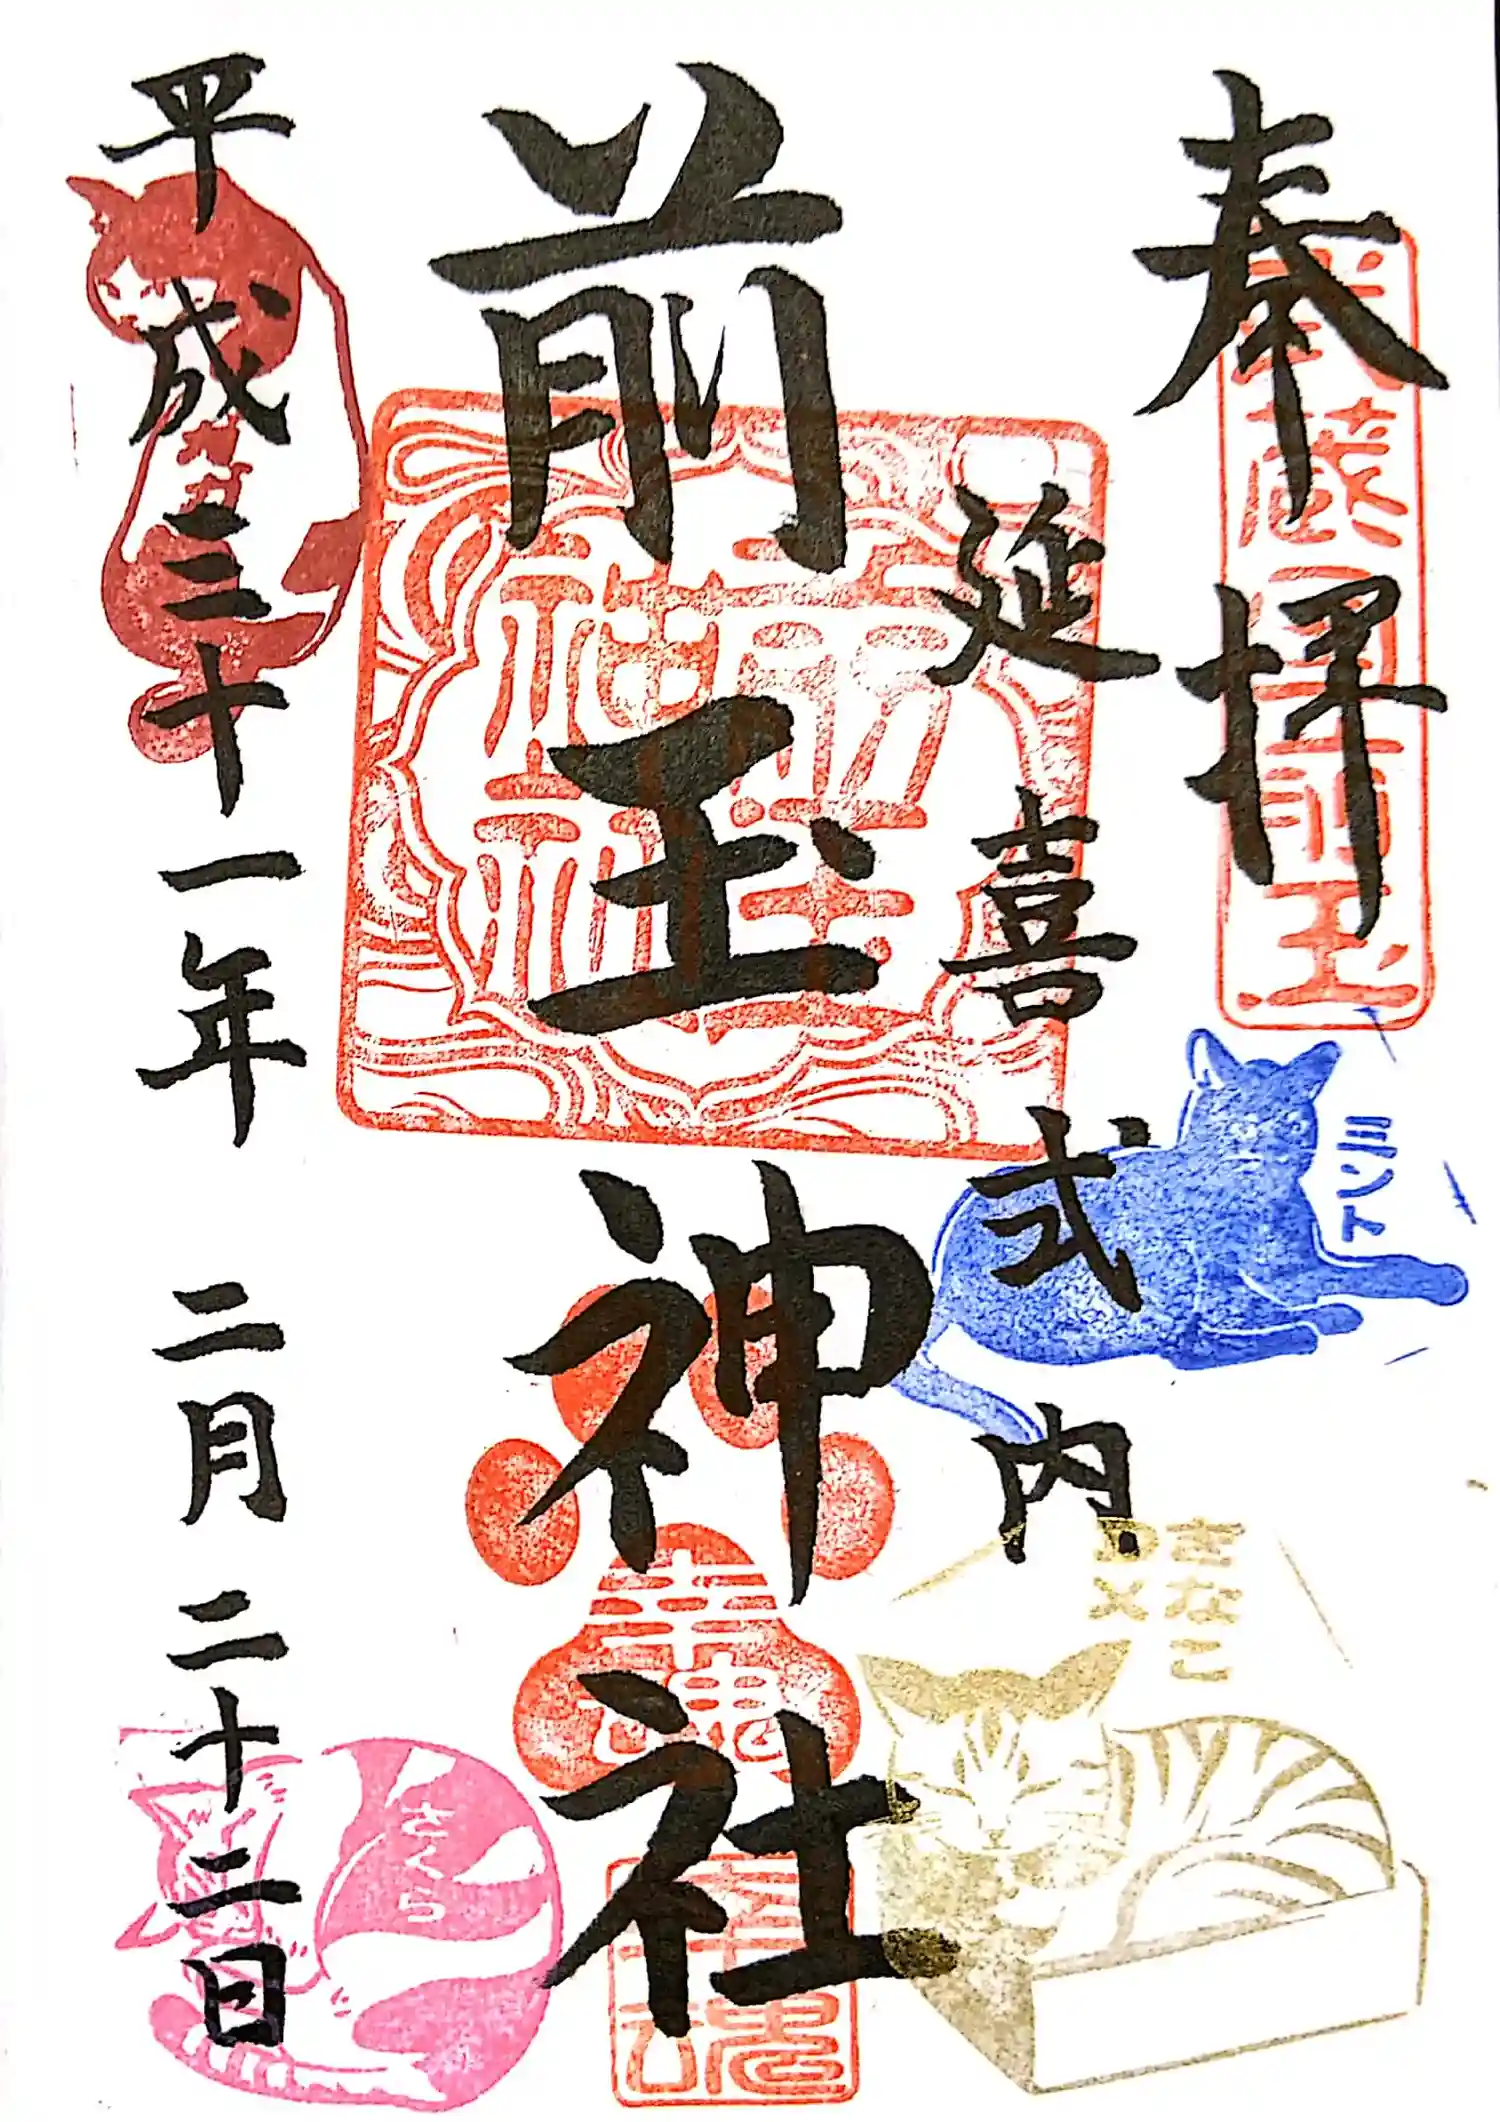 奉拝
武蔵国前玉
延喜式内
前玉神社
前玉神社
平成三十一年 二月 二十二日
ミント
きなこ
DX
幸魂
幸魂
さくら